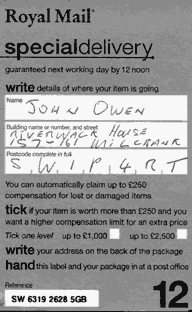 Royal Mail
specialdelivery
guaranteed next working day by 12 noon
write details of where your item is going
Name
JOHN OWEN
Building name or number, and street
RIVERWALK HOUSE
157-161 MILLBANK
Postcode complete in full
SW1P 4RT
You can automatically claim up to £250
compensation for lost or damaged items
tick if your item is worth more than £250 and you
want a higher compensation limit for an extra price
Tick one level up to £1,000 up to £2,500
write your address on the back of the package
hand this label and your package in at a post office
Reference
SW 6319 2628 5GB
12